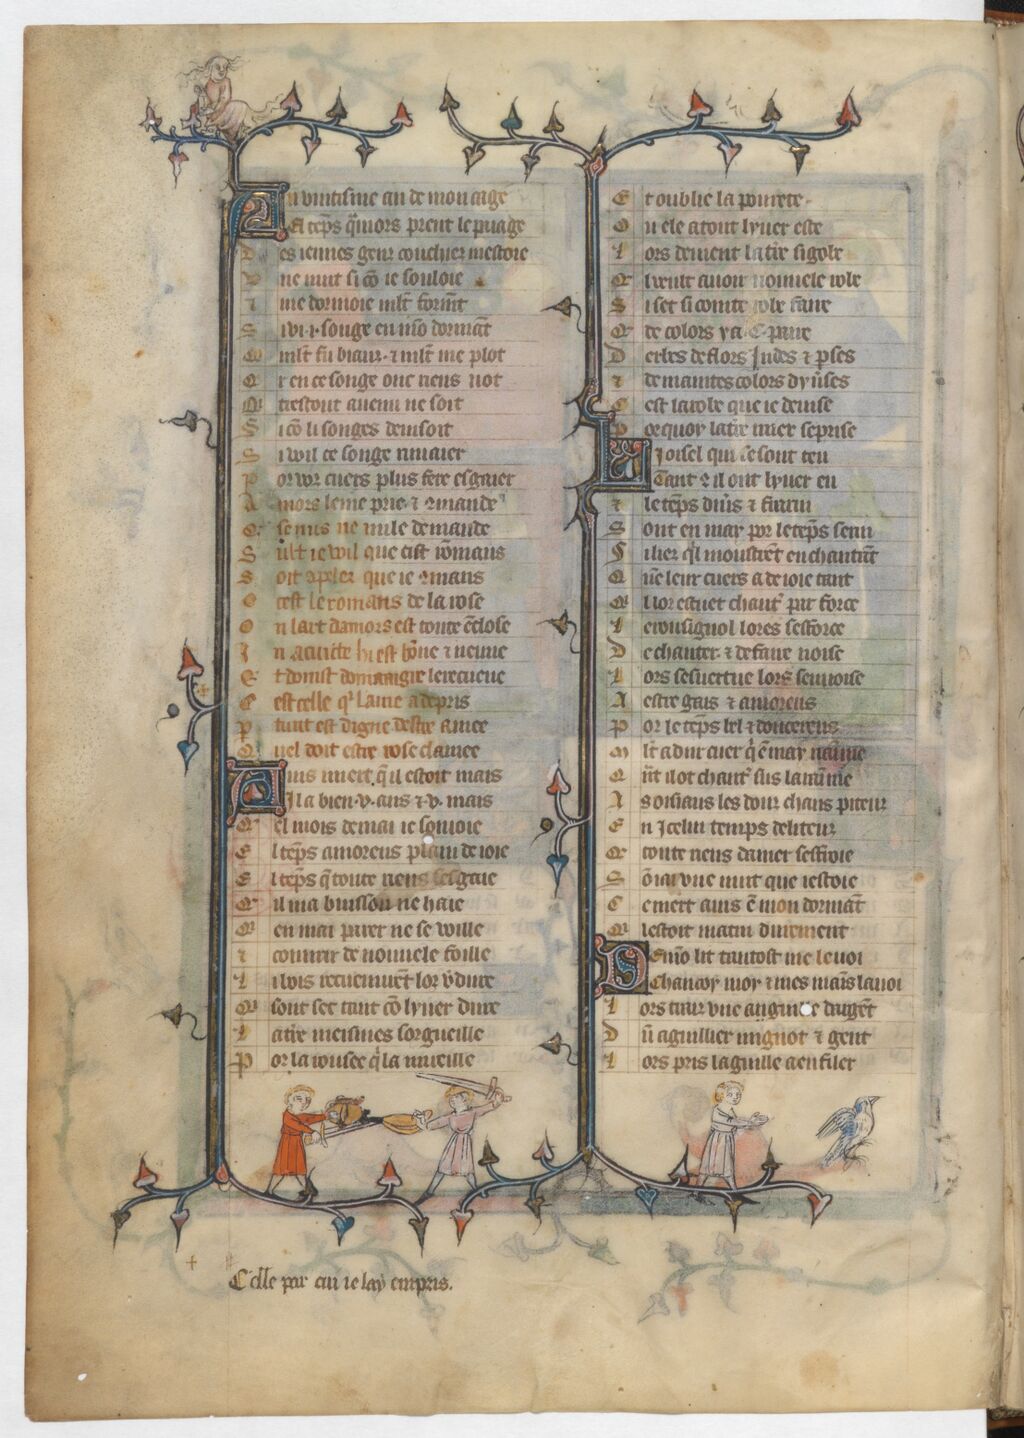 Au vintisme an de mon aage
El tēps q̄ mors prent le paage
Des iennes genz couchiez mestoie
Vne nuit si cō ie souloie
Z me dormoie ml̄t formt̄
S i vi .i. songe en mō dormāt
Q ml̄t fu biaux ⁊ ml̄t me plot
Q r en ce songe onc riens not
Q trestout auenu ne soit
S i cō li songes deuisoit
S i wil ce songe rimaier
P or voz cuers plus fere esgaier
A mors le me prie ⁊ 9mande
Q se nus ne nule demande
S
S oit apelez que ie 9mans
C cest le romans de la rose
O u lart damors est toute ēclose
L
E t domst
C est celle q̄
P tant est digne destre amee
Q uel doit estre rose clamee
A uis miert q̄ il estoit mais
Il a bien .v. ans ⁊ .v. mais
Q el mois de mai ie sonioie
E l tēps amoreus plain de ioie
E l tēps q̄ toute riens sesgaie
Q il ma buisson ne haie
Q en mai parer ne se wille
Z couurir de nouuele foille
L i bois recueurēt lor v̄dure
Q sont sec tant cō lyuer dure
L a t̄re meismes sorgueille
P or la rousee q̄ la mueille
E t oublie la pourete
O u ele a tout lyuer este
L ors deuient la t̄re si gole
Q l veult auoir nouuele robe
S i set si cointe robe faire
Q de colors y a .C. paire
D erbes de flors Indes ⁊ p̱ses
Z de maintes colors dyūses
C est la robe que ie deuise
P or quoy la t̄re mier se prise
L i oisel qui se sont teu
Tant 9 il ont lyuer eu
Z le tēps diūs ⁊ frarin
S ont en may por le tēps serin
S i liez q̄l moustrēt en chantāt
Q ūe leur cuers a de ioie tant
Q l lor estuet chant̄ par force
L i rousignol lores sesforce
D e chanter ⁊ de faire noise
L ors sesuertue lors senuoise
A estre gais ⁊ amoreus
P or le tēps bel ⁊ doucereus
M l̄t a dur cuer q̄ ē may naīme
Q ūt il ot chant̄ sus la raīme
A s oisiaus les douz chans piteuz
E n Icelui temps deliteuz
Q toute riens damer sesfroie
S ōiai vne nuit que iestoie
C e miert auis ē mon dormāt
Q l estoit matin durement
D e mō lit tantost me leuoi
Chancoy moy ⁊ mes mains lauoi
L ors trais vne anguille dargēt
D ū aguillier mignot ⁊ gent
L ors pris laguille a enfiler
Celle por cui ie lay empris.